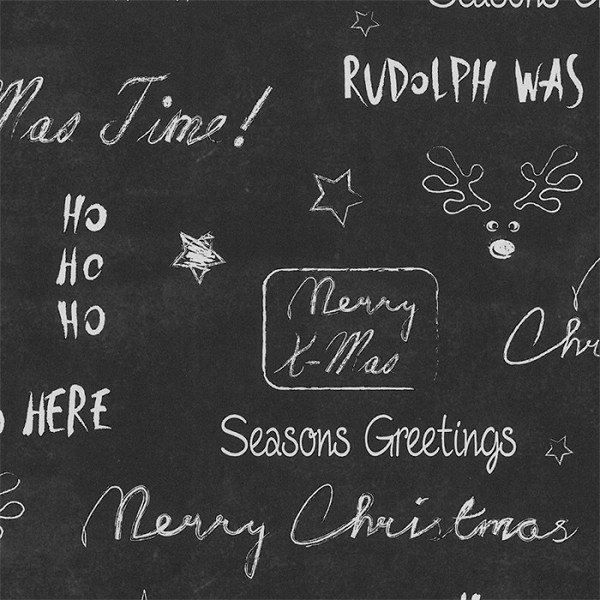 Seasons
RUDOLPH WAS
Mas Time!
HO
HO
HO
Merry
X-Mas
Chr
HERE
Seasons Greetings
Merry Christmas